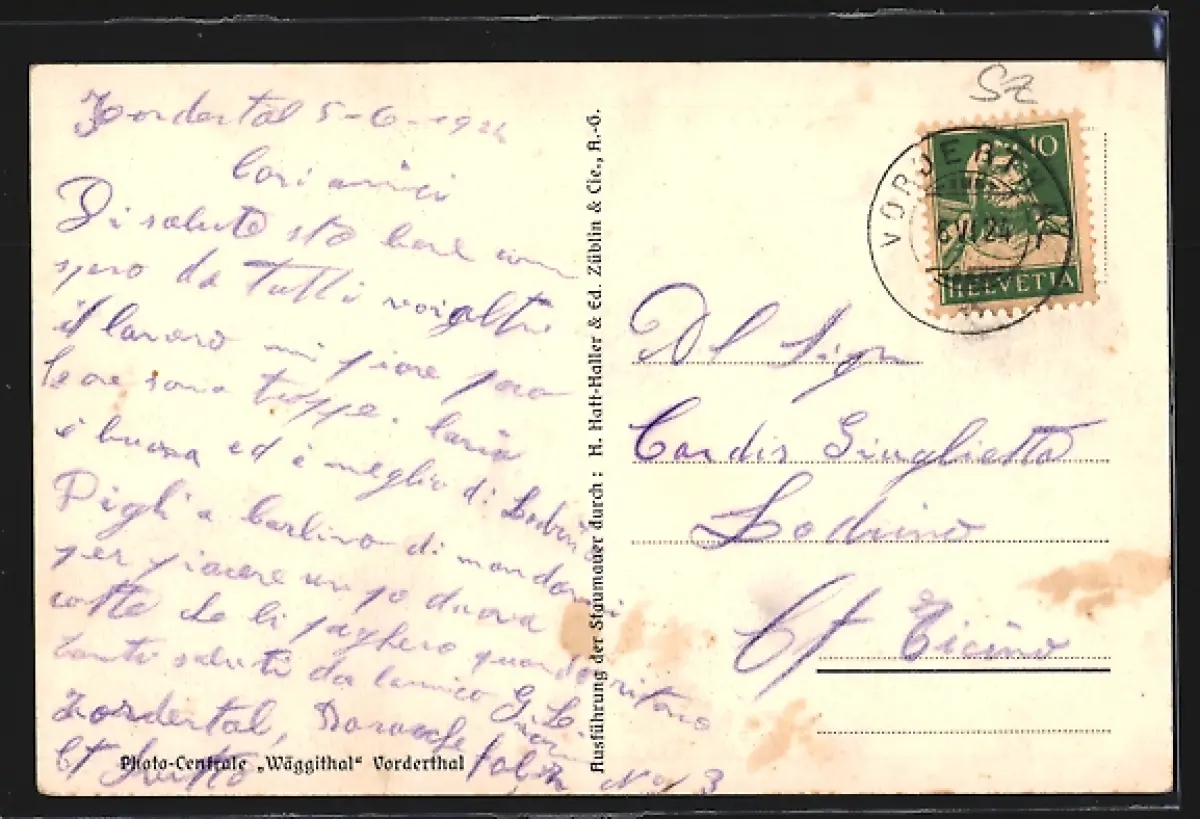 Fordertal 5-6-1924
Cari amici
Di salute sto bene com
spero da tutti voialtri
il lavoro mi piace pero
le ore sono troppe. laria
è buona ed è meglio di Lodrino
Pigli a berlino di mandarmi
per piacere un po duova
cotte che li paghero quando ritorno
tanti saluti da lamico G. L.
Fordertal, Baracche
Ct Svitto No 3
Photo-Centrale „Wäggithal“ Vorderthal
Ausführung der Staumauer durch: H. Hatt-Haller & Ed. Züblin & Cie., A.-G.
SZ
10
HELVETIA
VORDERTHAL
6.VI.24
Al Sign
Cardis Giuglietta
Lodrino
Ct Ticino